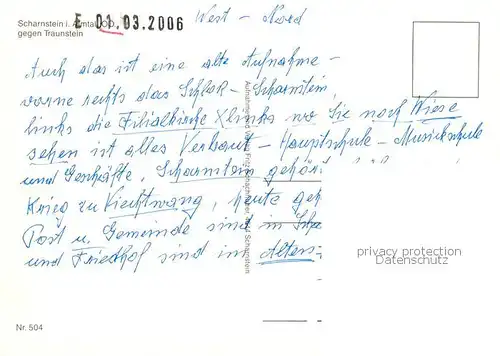 Scharnstein i. Almtal, OÖ.
gegen Traunstein
E 01.03.2006
West - Nord
Auch das ist eine alte Aufnahme -
vorne rechts das Schloß - Scharnstein
links die Filialkirche X links wo Sie noch Wiese
sehen ist alles Verbaut - Hauptschule - Musikschule
und Geschäfte, Scharnstein gehör
Krieg zu Viechtwang, heute geh
Post u. Gemeinde sind in Scha
und Friedhof sind in Alters-
Aufnahme und Verlag
Scharnstein
privacy protection
Datenschutz
Nr. 504